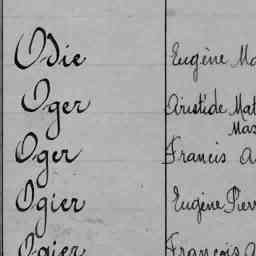 Odie Eugène Ma
Oger Aristide Mat
Max
Oger Francis A
Ogier Eugène Pierr
Ogier François A